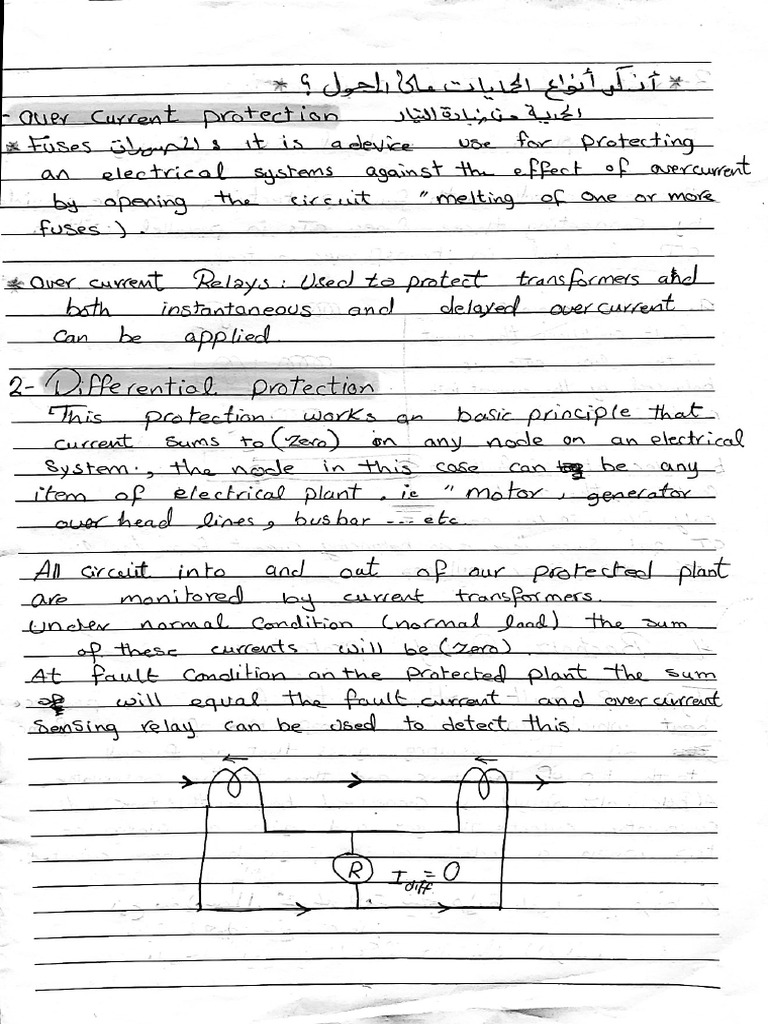 * أذكر أنواع الحمايات على المحول ؟ *
- Over Current protection الحماية من زيادة التيار
* Fuses المصهرات : it is a device use for protecting
an electrical systems against the effect of overcurrent
by opening the circuit "melting of one or more
fuses).
* Over current Relays: Used to protect transformers and
both instantaneous and delayed overcurrent
can be applied.
2- Differential protection
This protection works on basic principle that
current sums to (Zero) on any node on an electrical
system., the node in this case can be any
item of electrical plant. ie "motor, generator
over head lines, busbar --- etc.
All circuit into and out of our protected plant
are monitored by current transformers.
Under normal condition (normal load) the sum
of these currents will be (zero).
At fault condition on the protected plant the sum
will equal the fault current and overcurrent
sensing relay can be used to detect this.
R Idiff = 0